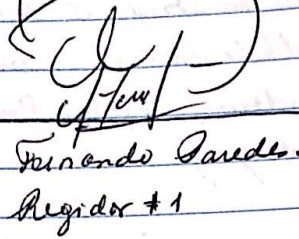 Fernando Paredes.
Regidor #1